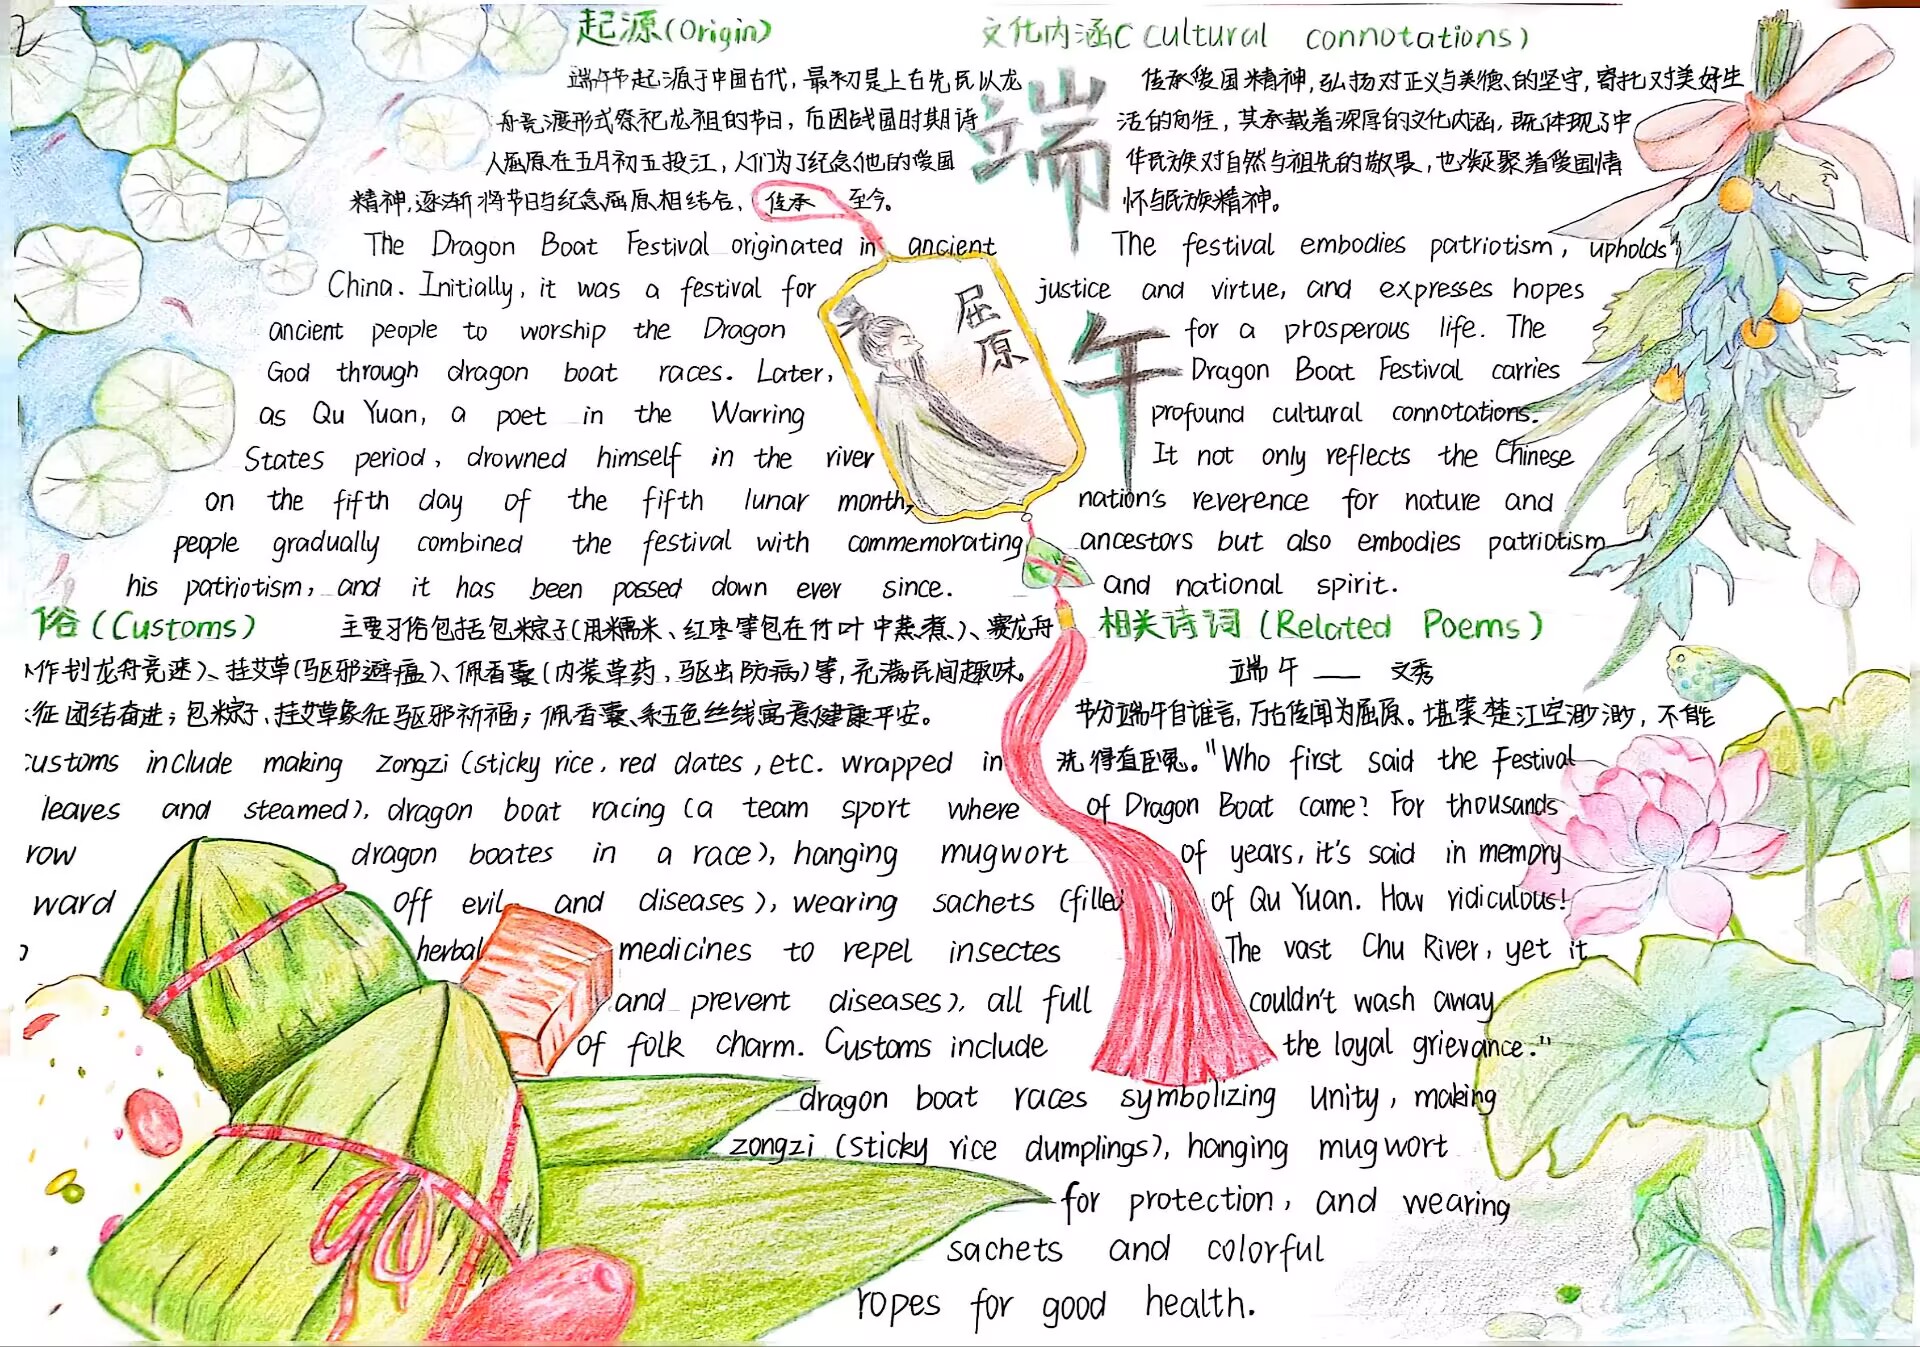 起源(Origin)
端午节起源于中国古代，最初是上古先民以龙
舟竞渡形式祭祀龙祖的节日，后因战国时期诗
人屈原在五月初五投江，人们为了纪念他的爱国
精神，逐渐将节日与纪念屈原相结合，传承至今。
The Dragon Boat Festival originated in ancient
China. Initially, it was a festival for
ancient people to worship the Dragon
God through dragon boat races. Later,
as Qu Yuan, a poet in the Warring
States period, drowned himself in the river
on the fifth day of the fifth lunar month,
people gradually combined the festival with commemorating
his patriotism, and it has been passed down ever since.
端午
屈原
文化内涵(Cultural connotations)
传承爱国精神，弘扬对正义与美德的坚守，寄托对美好生
活的向往，其承载着深厚的文化内涵，既体现了中
华民族对自然与祖先的敬畏，也凝聚着爱国情
怀与民族精神。
The festival embodies patriotism, upholds
justice and virtue, and expresses hopes
for a prosperous life. The
Dragon Boat Festival carries
profound cultural connotations.
It not only reflects the Chinese
nation's reverence for nature and
ancestors but also embodies patriotism
and national spirit.
俗(Customs)
主要习俗包括包粽子(用糯米、红枣等包在竹叶中蒸煮)、赛龙舟
作划龙舟竞速)、挂艾草(驱邪避瘟)、佩香囊(内装草药，驱虫防病)等，充满民间趣味。
征团结奋进；包粽子、挂艾草象征驱邪祈福；佩香囊、系五色丝线寓意健康平安。
customs include making zongzi (sticky rice, red dates, etc. wrapped in
leaves and steamed), dragon boat racing (a team sport where
row dragon boates in a race), hanging mugwort
ward off evil and diseases), wearing sachets (filled
herbal medicines to repel insectes
and prevent diseases), all full
of folk charm. Customs include
dragon boat races symbolizing unity, making
zongzi (sticky rice dumplings), hanging mugwort
for protection, and wearing
sachets and colorful
ropes for good health.
相关诗词(Related Poems)
端午 —— 文秀
节分端午自谁言，万古传闻为屈原。堪笑楚江空渺渺，不能
洗得直臣冤。"Who first said the Festival
of Dragon Boat came? For thousands
of years, it's said in memory
of Qu Yuan. How ridiculous!
The vast Chu River, yet it
couldn't wash away
the loyal grievance."